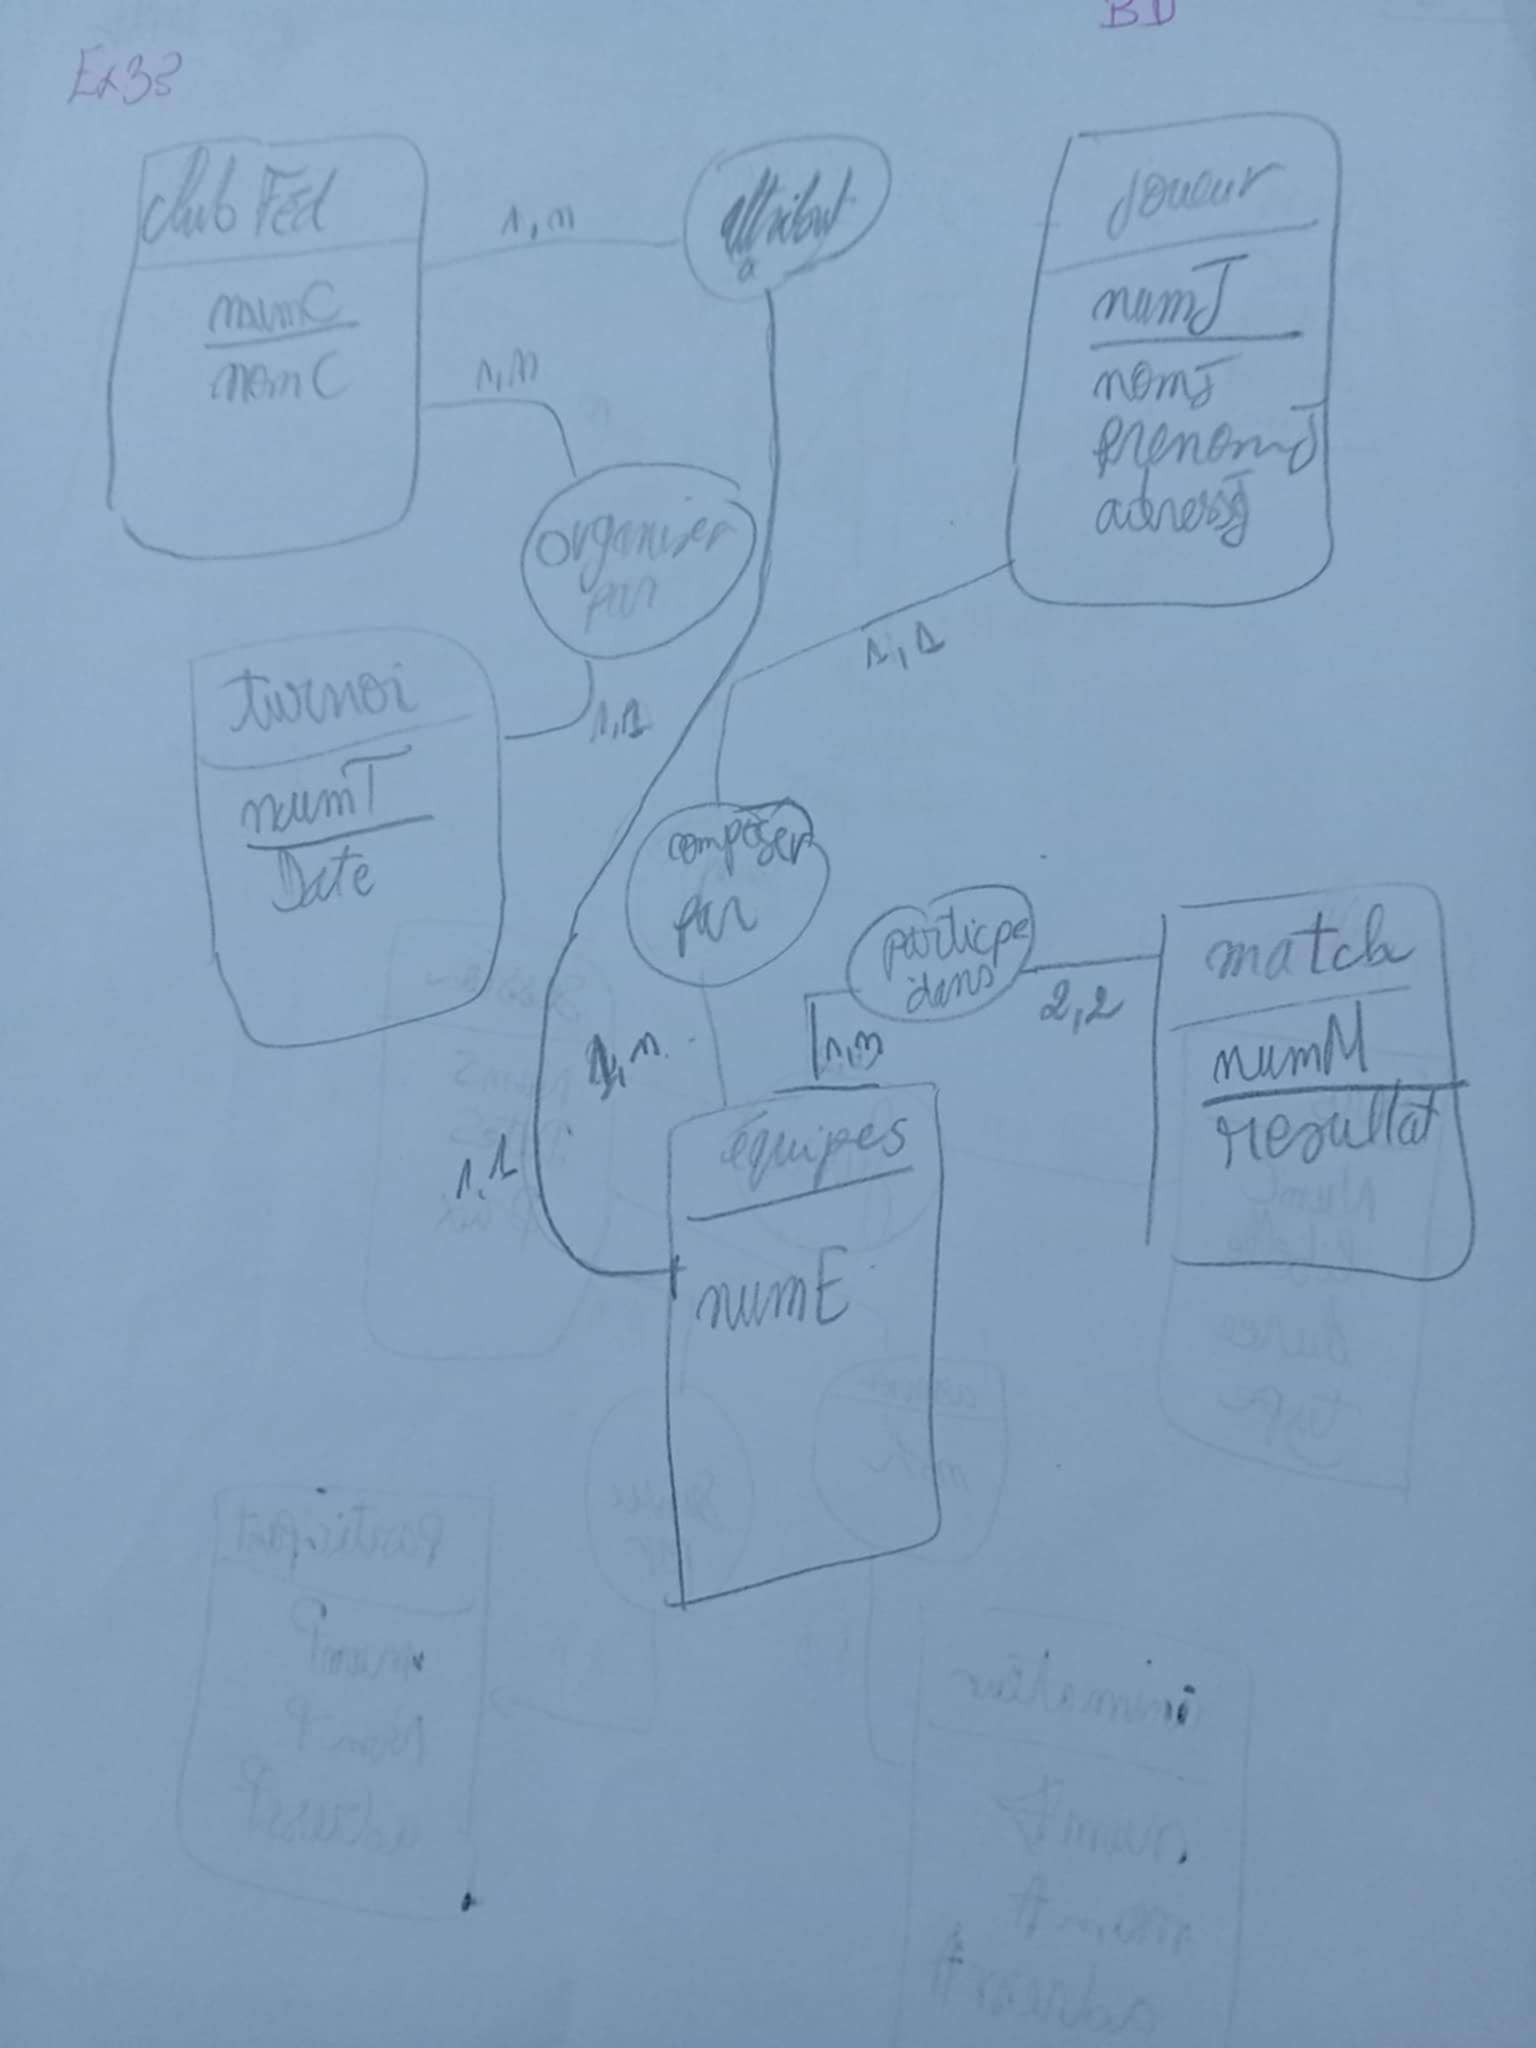 BD
Ex33
club Fed
numC
nomC
1,n
attribut
a
Joueur
numJ
nomJ
prenomJ
adressJ
1,n
organiser
par
1,1
turnoi
numT
Date
1,1
composer
par
1,n
particpe
dans
1,n
2,2
match
numM
resultat
1,1
équipes
numE